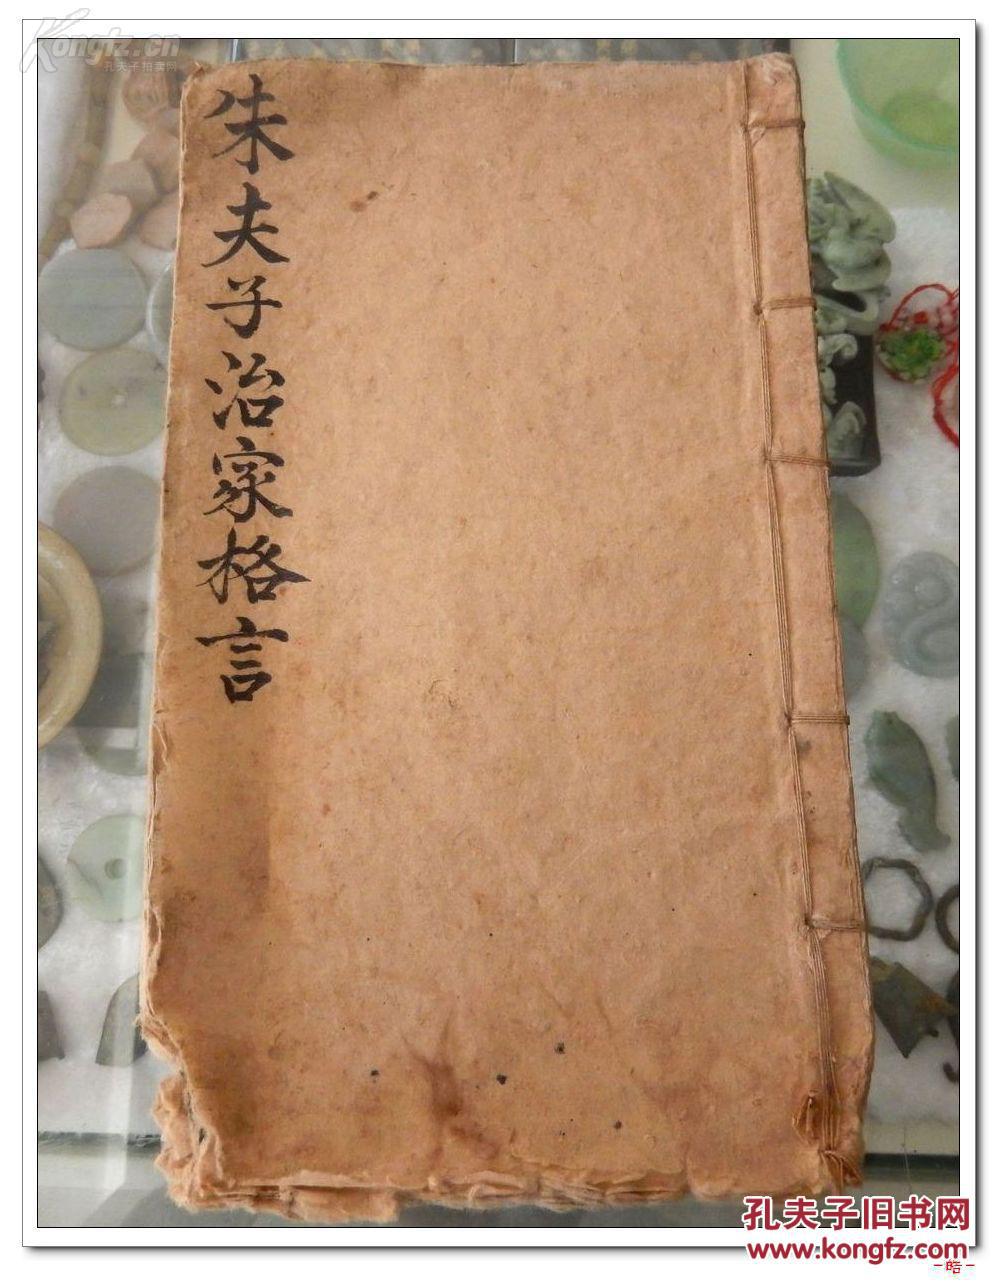 Kongfz.cn
孔夫子拍卖网
朱夫子治家格言
孔夫子旧书网
www.kongfz.com
-皓-